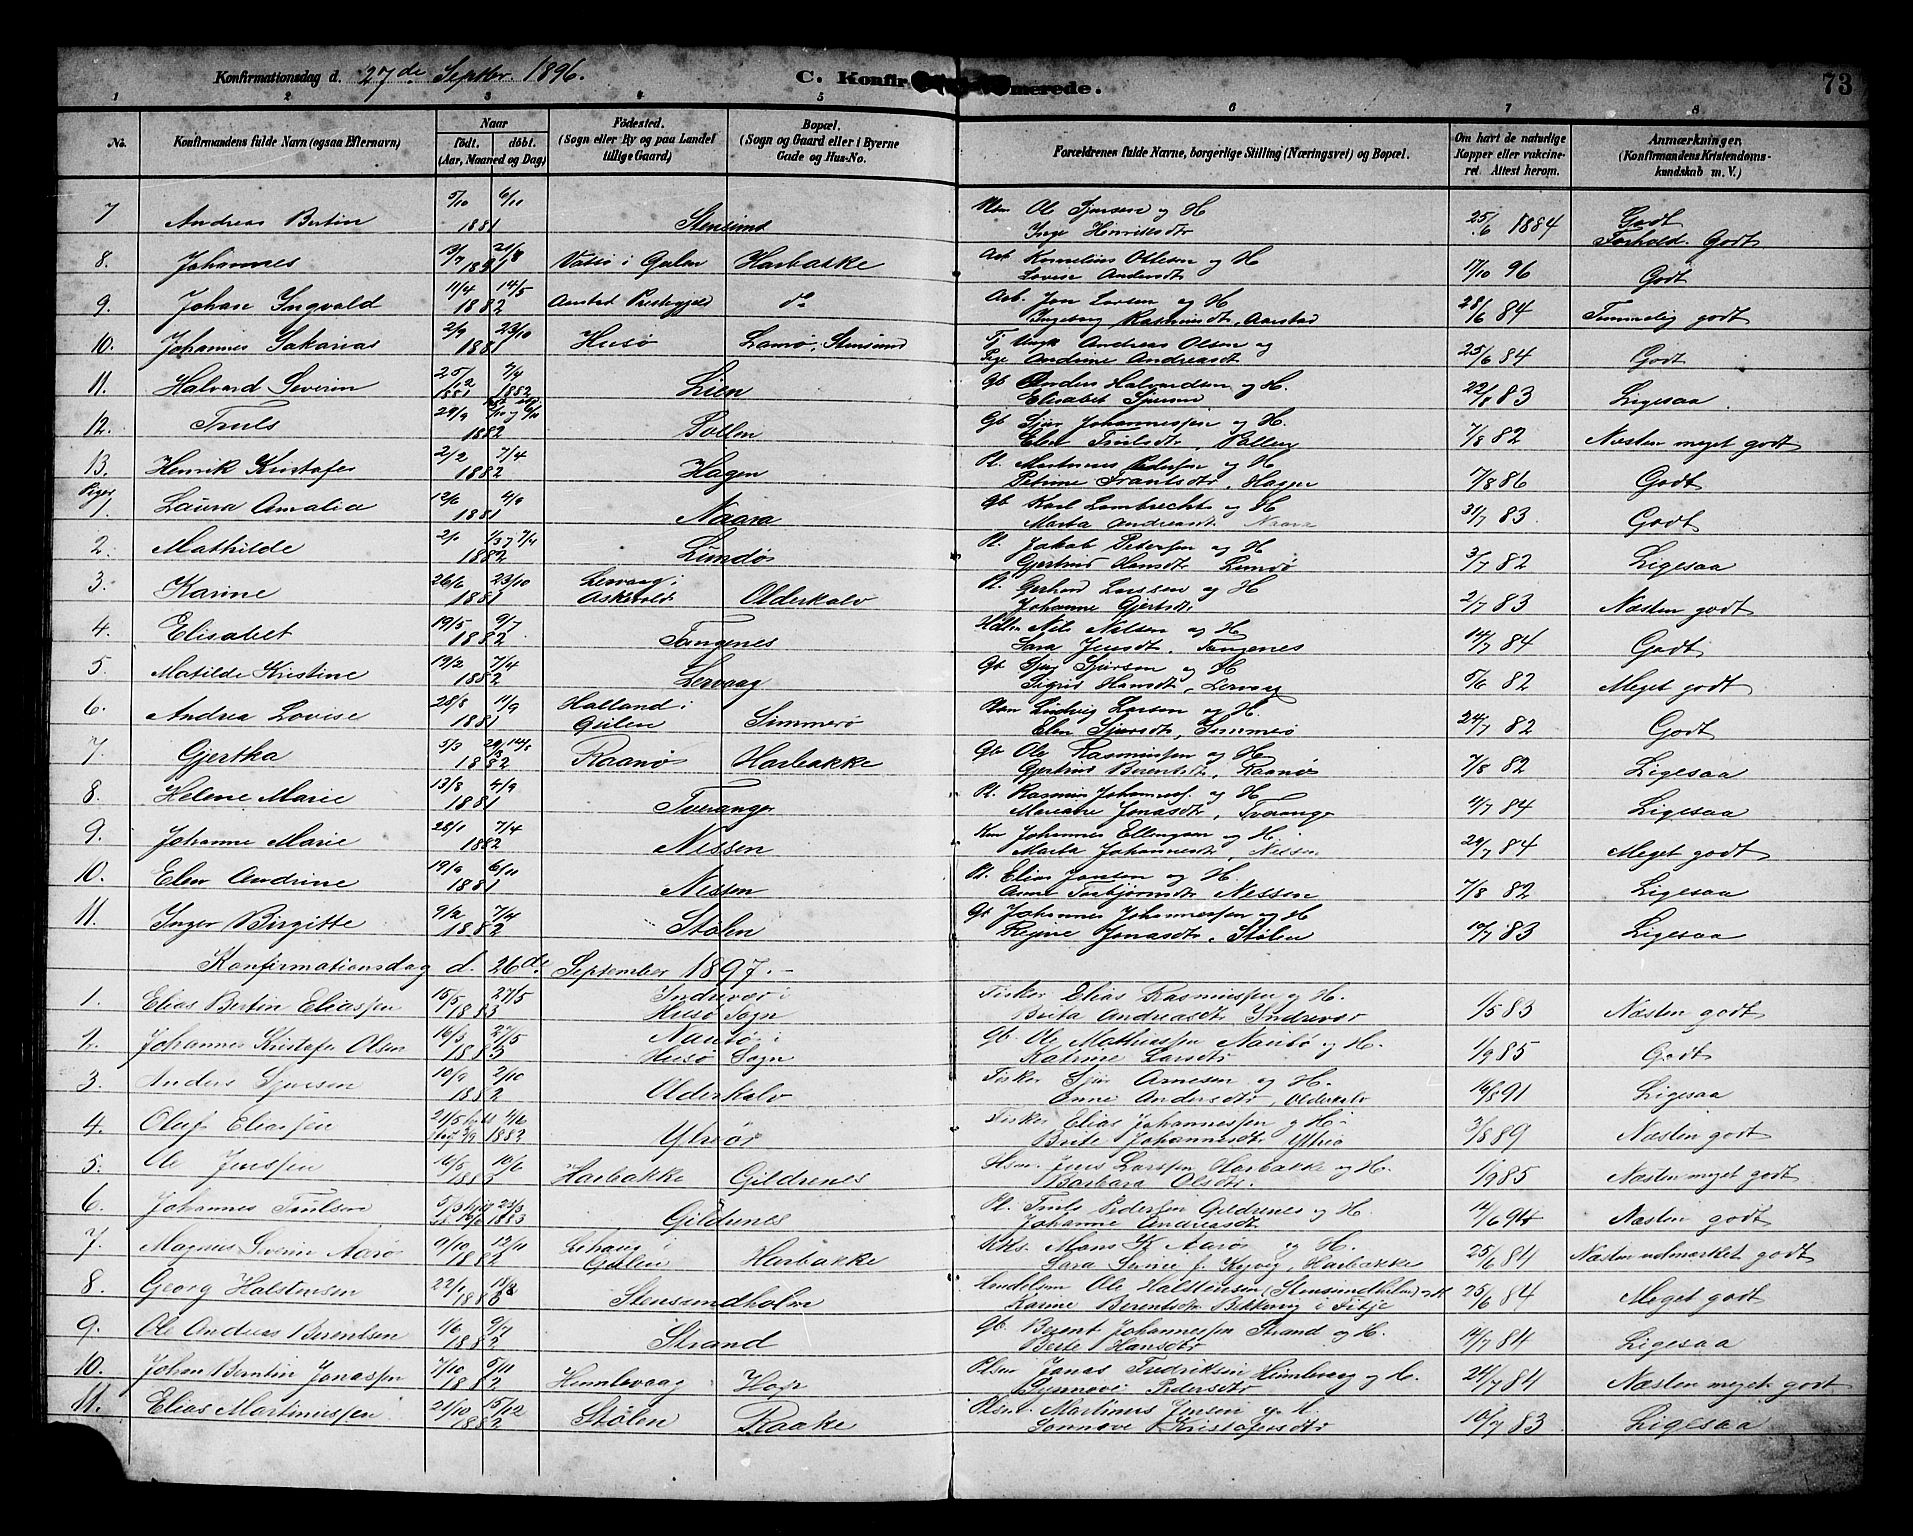 Konfirmationsdag d. 27de Septbr. 1896. C. Konfirmerede. 73
1 2 3 4 5 6 7 8
No. Konfirmandens fulde Navn (ogsaa Efternavn) Naar født. døbt. (Aar, Maaned og Dag) Fødested. (Sogn eller By og paa Landet tillige Gaard) Bopæl. (Sogn og Gaard eller i Byerne Gade og Hus-No. Forældrenes fulde Navne, borgerlige Stilling (Næringsvei) og Bopæl. Om havt de naturlige Kopper eller vakcineret. Attest herom. Anmærkninger. (Konfirmandens Kristendomskundskab m. V.)
7 Andreas Bertin 5/10 6/11 1881 Stensund Ole Sjursen og H Inge Henriksdtr 25/6 1884 Godt Forhold. Godt
8. Johannes 1881 i Gulen Harbakke Arb Kornelius Ollesen og H Lovise Andersdt 17/10 96 Godt
9. Johan Ingvald 11/4 14/5 1882 Aarstad Prestegjeld do Arb. Jon Larsen og H Ingeborg Rasmusdt, Aarstad 28/6 84 Temmelig godt
10. Johannes Sakarias 2/9 23/10 1881 Husø Lamø, Stensund Andreas Olsen og Pige Andrine Andreasdt 25/6 84 Godt
11. Halvard Severin 25/12 1881 7/4 1882 Lien Gb Anders Halvardsen og H. Elisabet Sjursen 22/8 83 Ligesaa
12. Truls 29/9 1882 Pollen Gb Sjur Johannessen og H. Elen Trulsdt, Pollen 7/8 82 Næsten meget godt
13. Henrik Kristofer 2/2 7/4 1882 Hagen Pl. Martinus Pedersen og H Petrine Frantsdt, Hagen 7/8 86 Godt
Piger
1 Laura Amalia 12/6 4/9 1881 Naara Gb Karl Lambrechts og H Marta Andreasdt Naara 31/7 83 Godt
2. Mathilde 2/1 7/4 1882 Lundø Pl. Jakob Petersen og H Gjertrud Hansdt Lundø 3/7 82 Ligesaa
3. Karine 26/6 23/10 1881 Lervaag i Askevold Olderkalv Pl. Gerhard Larssen og H Johanne Gjertsdt 2/7 83 Næsten godt
4. Elisabet 19/5 9/7 1882 Tangenes Nils Nilsen og H. Sara Jensdt. Tangenes 14/7 84 Godt
5. Matilde Kristine 19/2 7/4 1882 Lervaag Gb Sjur Sjursen og H Sigrid Hansdt, Lervaag 5/6 82 Meget godt
6. Andrea Lovise 28/8 11/9 1881 Halland i Gulen Simmerø Ludvig Larsen og H. Elen Sjursdt, Simmerø 24/7 82 Godt
7. Gjertha 5/3 1882 Raanø Harbakke Gb Ole Rasmussen og H Gjertrud Berentsdt, Raanø 7/8 82 Ligesaa
8. Helene Marie 13/8 4/9 1881 Tveranger Pl. Rasmus Johanness. og H Mariane Jonasdt, Tveranger 84 Ligesaa
9. Johanne Marie 28/1 7/4 1882 Nessen Johannes Ellingsen og H. Marta Johannesdt, Nessen 29/7 84 Meget godt
10. Elen Andrine 19/9 6/11 1881 Nessen Pl. Elias Jonsen og H Anne Torbjørnsdt Nessen 7/8 82 Ligesaa
11. Inger Birgitte 9/2 7/4 1882 Stølen Gb Johannes Johannessen og H Regine Jonasdt. Stølen 10/7 83 Ligesaa
Konfirmationsdag d. 26de September 1897.-
1. Elias Bertin Eliassen 15/5 27/5 1883 Indrevær i Husø Sogn Fisker Elias Rasmussen og H. Brita Andreasdt Indrevær 1/5 83 Næsten godt
2. Johannes Kristofer Olsen 16/3 27/5 1883 Nautø i Husø Sogn Gb. Ole Mathiassen Nautø og H. Katrine Larsdtr 1/9 85 Godt
3. Anders Sjursen 10/9 2/10 1882 Olderkalv Fisker Sjur Arnesen og H. Anne Andersdtr, Olderkalv 16/8 91 Ligesaa
4. Oluf Eliassen 21/5 1883 Ytrøer Fisker Elias Johannessen og H. Brite Johannesdtr 3/8 89 Næsten godt
5. Ole Jenssen 16/5 10/6 1883 Harbakke Gildrenes Jens Larssen Harbakke og H. Barbara Olsdtr. 1/9 85 Næsten meget godt
6. Johannes Trulsen 5/3 1883 Gildrenes Pl. Truls Pedersen Gildrenes og H. Johanne Andreasdt 14/6 94 Næsten godt
7. Magnus Severin Aarø 9/10 12/11 1882 i Gulen Harbakke Kks. Mons K Aarø og H. Sara Harbakke 25/6 84 Næsten udmærket godt
8. Georg Halstensen 22/1 1883 Stensundholm Handelsm Ole Halstensen (Stensundholm) og H Berentsdtr i Fitje 25/6 84 Meget godt
9. Ole Andreas Berentsen 1/6 9/7 1882 Strand Gb. Berent Johannessen Strand og H. Berte Hansdtr 14/7 84 Ligesaa
10. Johan Berntin Jonassen 7/10 5/11 1882 Himlevaag Jonas Fredriksen Himlevaag og H. Synnøve Pedersdtr 24/7 84 Næsten meget godt
11. Elias Martinussen 21/10 15/12 1882 Stølen Raake Martinus Jensen og H. Sønnøve Kristofersdtr 10/7 83 Ligesaa